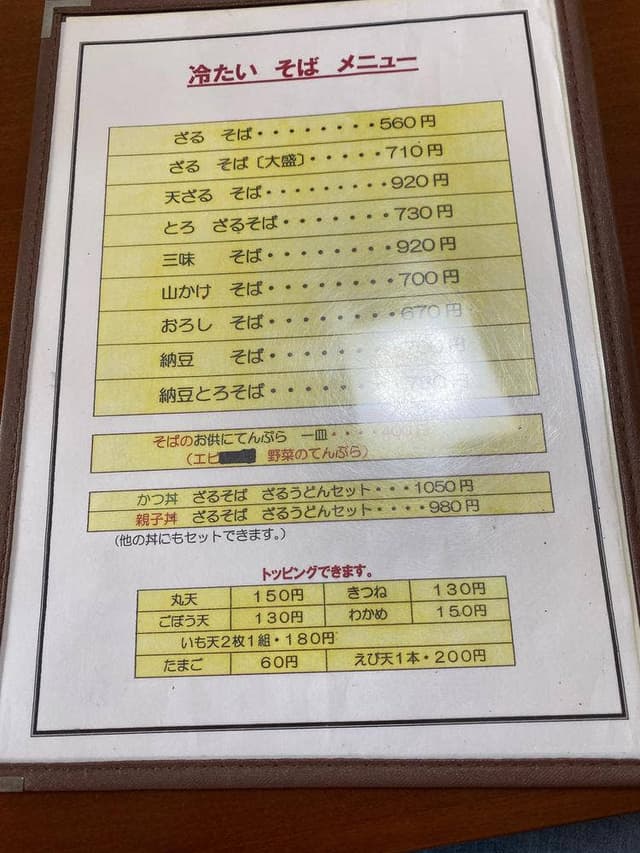 冷たい そば メニュー
ざる そば・・・・・・・・560円
ざる そば〔大盛〕・・・・・710円
天ざる そば・・・・・・・・920円
とろ ざるそば・・・・・・・730円
三味 そば・・・・・・・・920円
山かけ そば・・・・・・・・700円
おろし そば・・・・・・・・670円
納豆 そば・・・・・・
納豆とろそば・・・・・・
そばのお供にてんぷら 一皿・・・・
(エビ 野菜のてんぷら)
かつ丼 ざるそば ざるうどんセット・・・1050円
親子丼 ざるそば ざるうどんセット・・・・980円
(他の丼にもセットできます。)
トッピングできます。
丸天 150円 きつね 130円
ごぼう天 130円 わかめ 150円
いも天2枚1組・180円
たまご 60円 えび天1本・200円